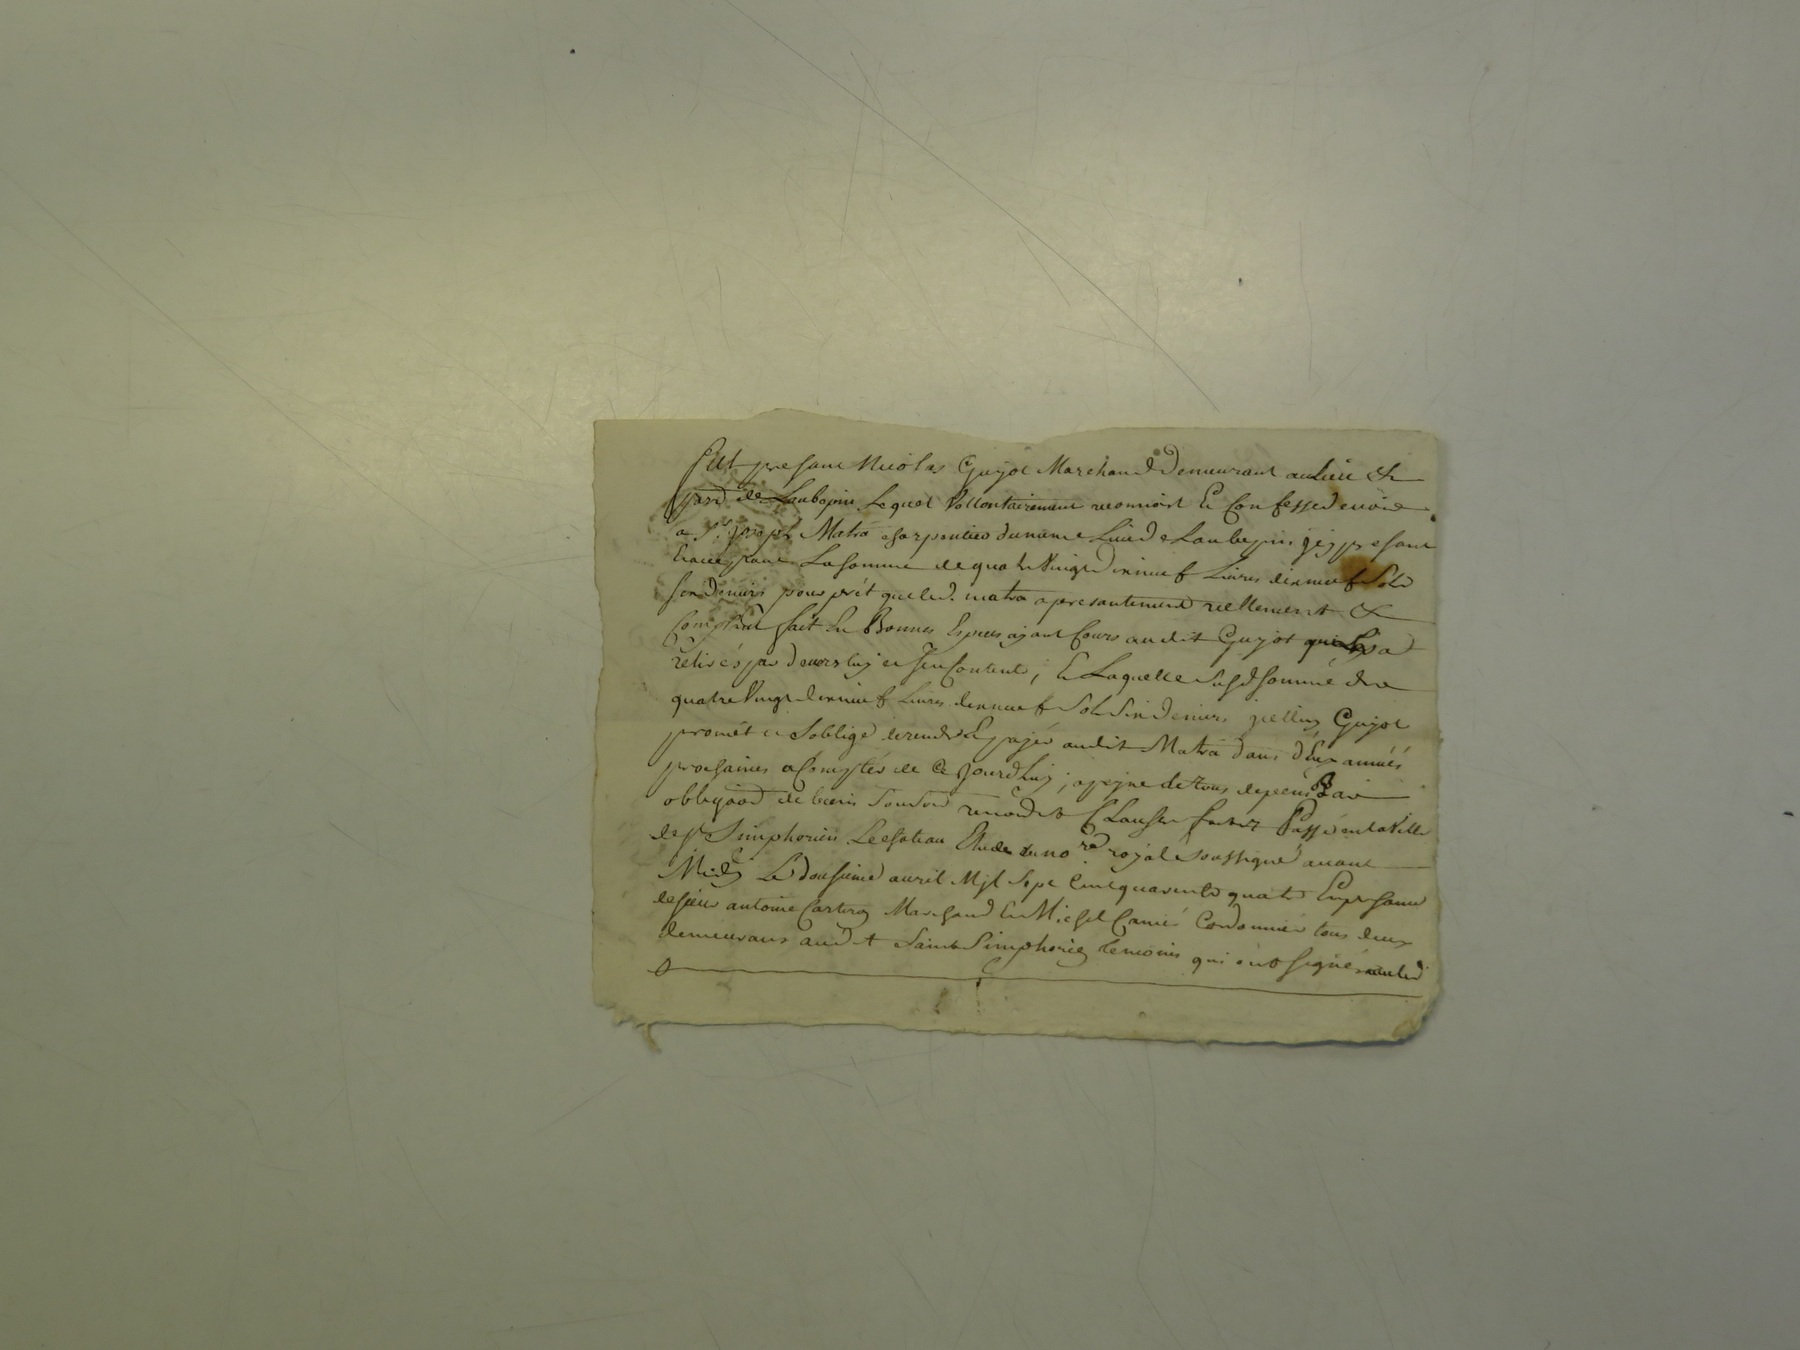 fut present Nicolas Guyot Marchand Demeurant au Lieu &
parr de Laubepin Lequel Vollontairement reconnoist Et Confesse devoir
a Sr joseph Matra charpentier du meme Lieu de Laubepin jcy present
Et acceptant La somme de quatre Vingt dixneuf Livres dixneuf Sols
six Deniers pour prét que led. matra a presantement reellement &
Comptant fait En Bonnes Especes ajant Cours au dit Guyot qui Les a
retirés par devers luy et s'en Content ; Et Laquelle susd somme de
quatre Vingt dixneuf Livres dixneuf Sols Six Deniers jcelluy Guyot
promét et s'oblige de rendre Et payér au dit Matra dans déux années
prochaines a Comptér de Ce Jourdhuy ; a peyne de tous depens Par
obligaon de biens Soumons renondns Clauses Passé en la Ville
de St Simphorien Le chateau Etude du nore royal Soussigné avant
Midy Le Dousieme avril Mjl Sept Cent quarente quatre En presance
de sieur antoine Marchand Et Michel Cordonnier tous deux
demeurans au dit Saint Simphorien temoins qui ont signé